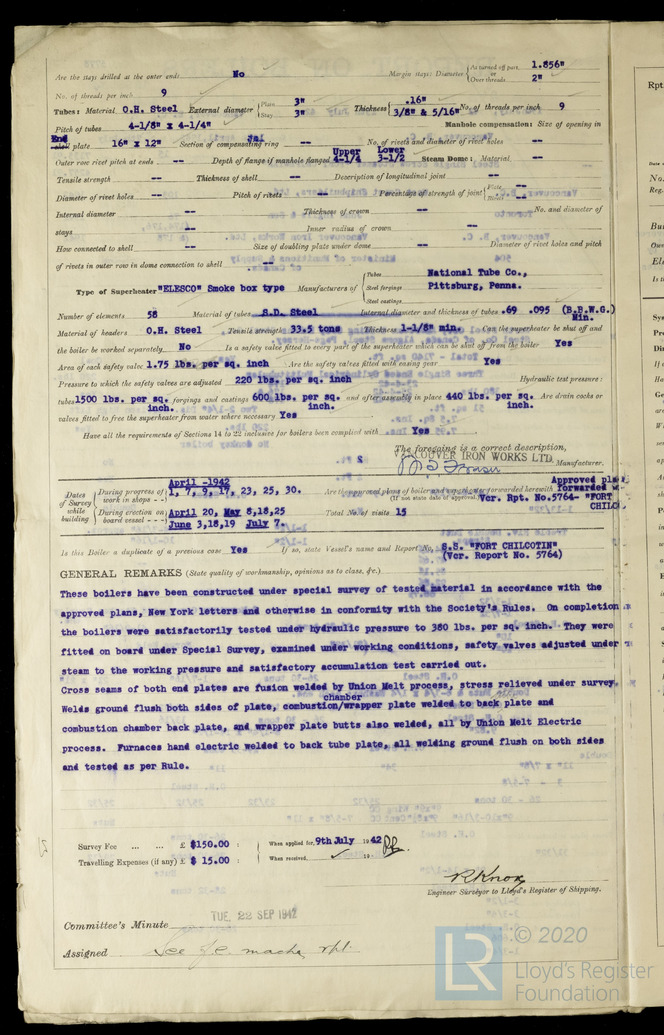 Are the stays drilled at the outer ends No Margin stays: Diameter { At turned off part, 1.856" or Over threads 2"
No. of threads per inch 9
Tubes: Material O.H. Steel External diameter { Plain 3" Stay 3" Thickness { .16" 3/8" & 5/16" No. of threads per inch 9
Pitch of tubes 4-1/8" x 4-1/4" Manhole compensation: Size of opening in
End shell plate 16" x 12" Section of compensating ring No. of rivets and diameter of rivet holes --
Outer row rivet pitch at ends -- Depth of flange if manhole flanged Upper 4-1/4 Lower 3-1/2 Steam Dome: Material --
Tensile strength -- Thickness of shell -- Description of longitudinal joint --
Diameter of rivet holes -- Pitch of rivets -- Percentage of strength of joint { Plate -- Rivet --
Internal diameter -- Thickness of crown -- No. and diameter of
stays -- Inner radius of crown --
How connected to shell -- Size of doubling plate under dome -- Diameter of rivet holes and pitch
of rivets in outer row in dome connection to shell --
Type of Superheater "ELESCO" Smoke box type Manufacturers of { Tubes Steel forgings Steel castings National Tube Co., Pittsburg, Penna.
Number of elements 58 Material of tubes S.D. Steel Internal diameter and thickness of tubes .69 .095 (B.B.W.G.) Min.
Material of headers O.H. Steel Tensile strength 33.5 tons Thickness 1-1/8" min. Can the superheater be shut off and
the boiler be worked separately No Is a safety valve fitted to every part of the superheater which can be shut off from the boiler Yes
Area of each safety valve 1.75 lbs. per sq. inch Are the safety valves fitted with easing gear Yes
Pressure to which the safety valves are adjusted 220 lbs. per sq. inch Hydraulic test pressure:
tubes 1500 lbs. per sq. inch. forgings and castings 600 lbs. per sq. inch. and after assembly in place 440 lbs. per sq. inch. Are drain cocks or
valves fitted to free the superheater from water where necessary Yes
Have all the requirements of Sections 14 to 22 inclusive for boilers been complied with Yes
The foregoing is a correct description,
COUVER IRON WORKS LTD. Manufacturer.
Dates of Survey while building { During progress of work in shops - - April -1942 1, 7, 9, 17, 23, 25, 30. Are the approved plans of boiler and superheater forwarded herewith Approved pla forwarded w
(If not state date of approval.) Vcr. Rpt. No.5764- "FORT CHILCO
During erection on board vessel - - - April 20, May 8,18,25 June 3,18,19 July 7. Total No. of visits 15
Is this Boiler a duplicate of a previous case Yes If so, state Vessel's name and Report No. S.S. "FORT CHILCOTIN" (Vcr. Report No. 5764)
GENERAL REMARKS (State quality of workmanship, opinions as to class, &c.)
These boilers have been constructed under special survey of tested material in accordance with the
approved plans, New York letters and otherwise in conformity with the Society's Rules. On completion
the boilers were satisfactorily tested under hydraulic pressure to 380 lbs. per sq. inch. They were
fitted on board under Special Survey, examined under working conditions, safety valves adjusted under
steam to the working pressure and satisfactory accumulation test carried out.
Cross seams of both end plates are fusion welded by Union Melt process, stress relieved under survey.
Welds ground flush both sides of plate, combustion chamber/wrapper plate welded to back plate and
combustion chamber back plate, and wrapper plate butts also welded, all by Union Melt Electric
process. Furnaces hand electric welded to back tube plate, all welding ground flush on both sides
and tested as per Rule.
Survey Fee ... ... £ $150.00 : When applied for, 9th July 1942
Travelling Expenses (if any) £ $ 15.00 : When received, 19
R Knox
Engineer Surveyor to Lloyd's Register of Shipping.
Committee's Minute TUE. 22 SEP 1942
Assigned See F.E. machy rpt.
LR © 2020
Lloyd's Register
Foundation